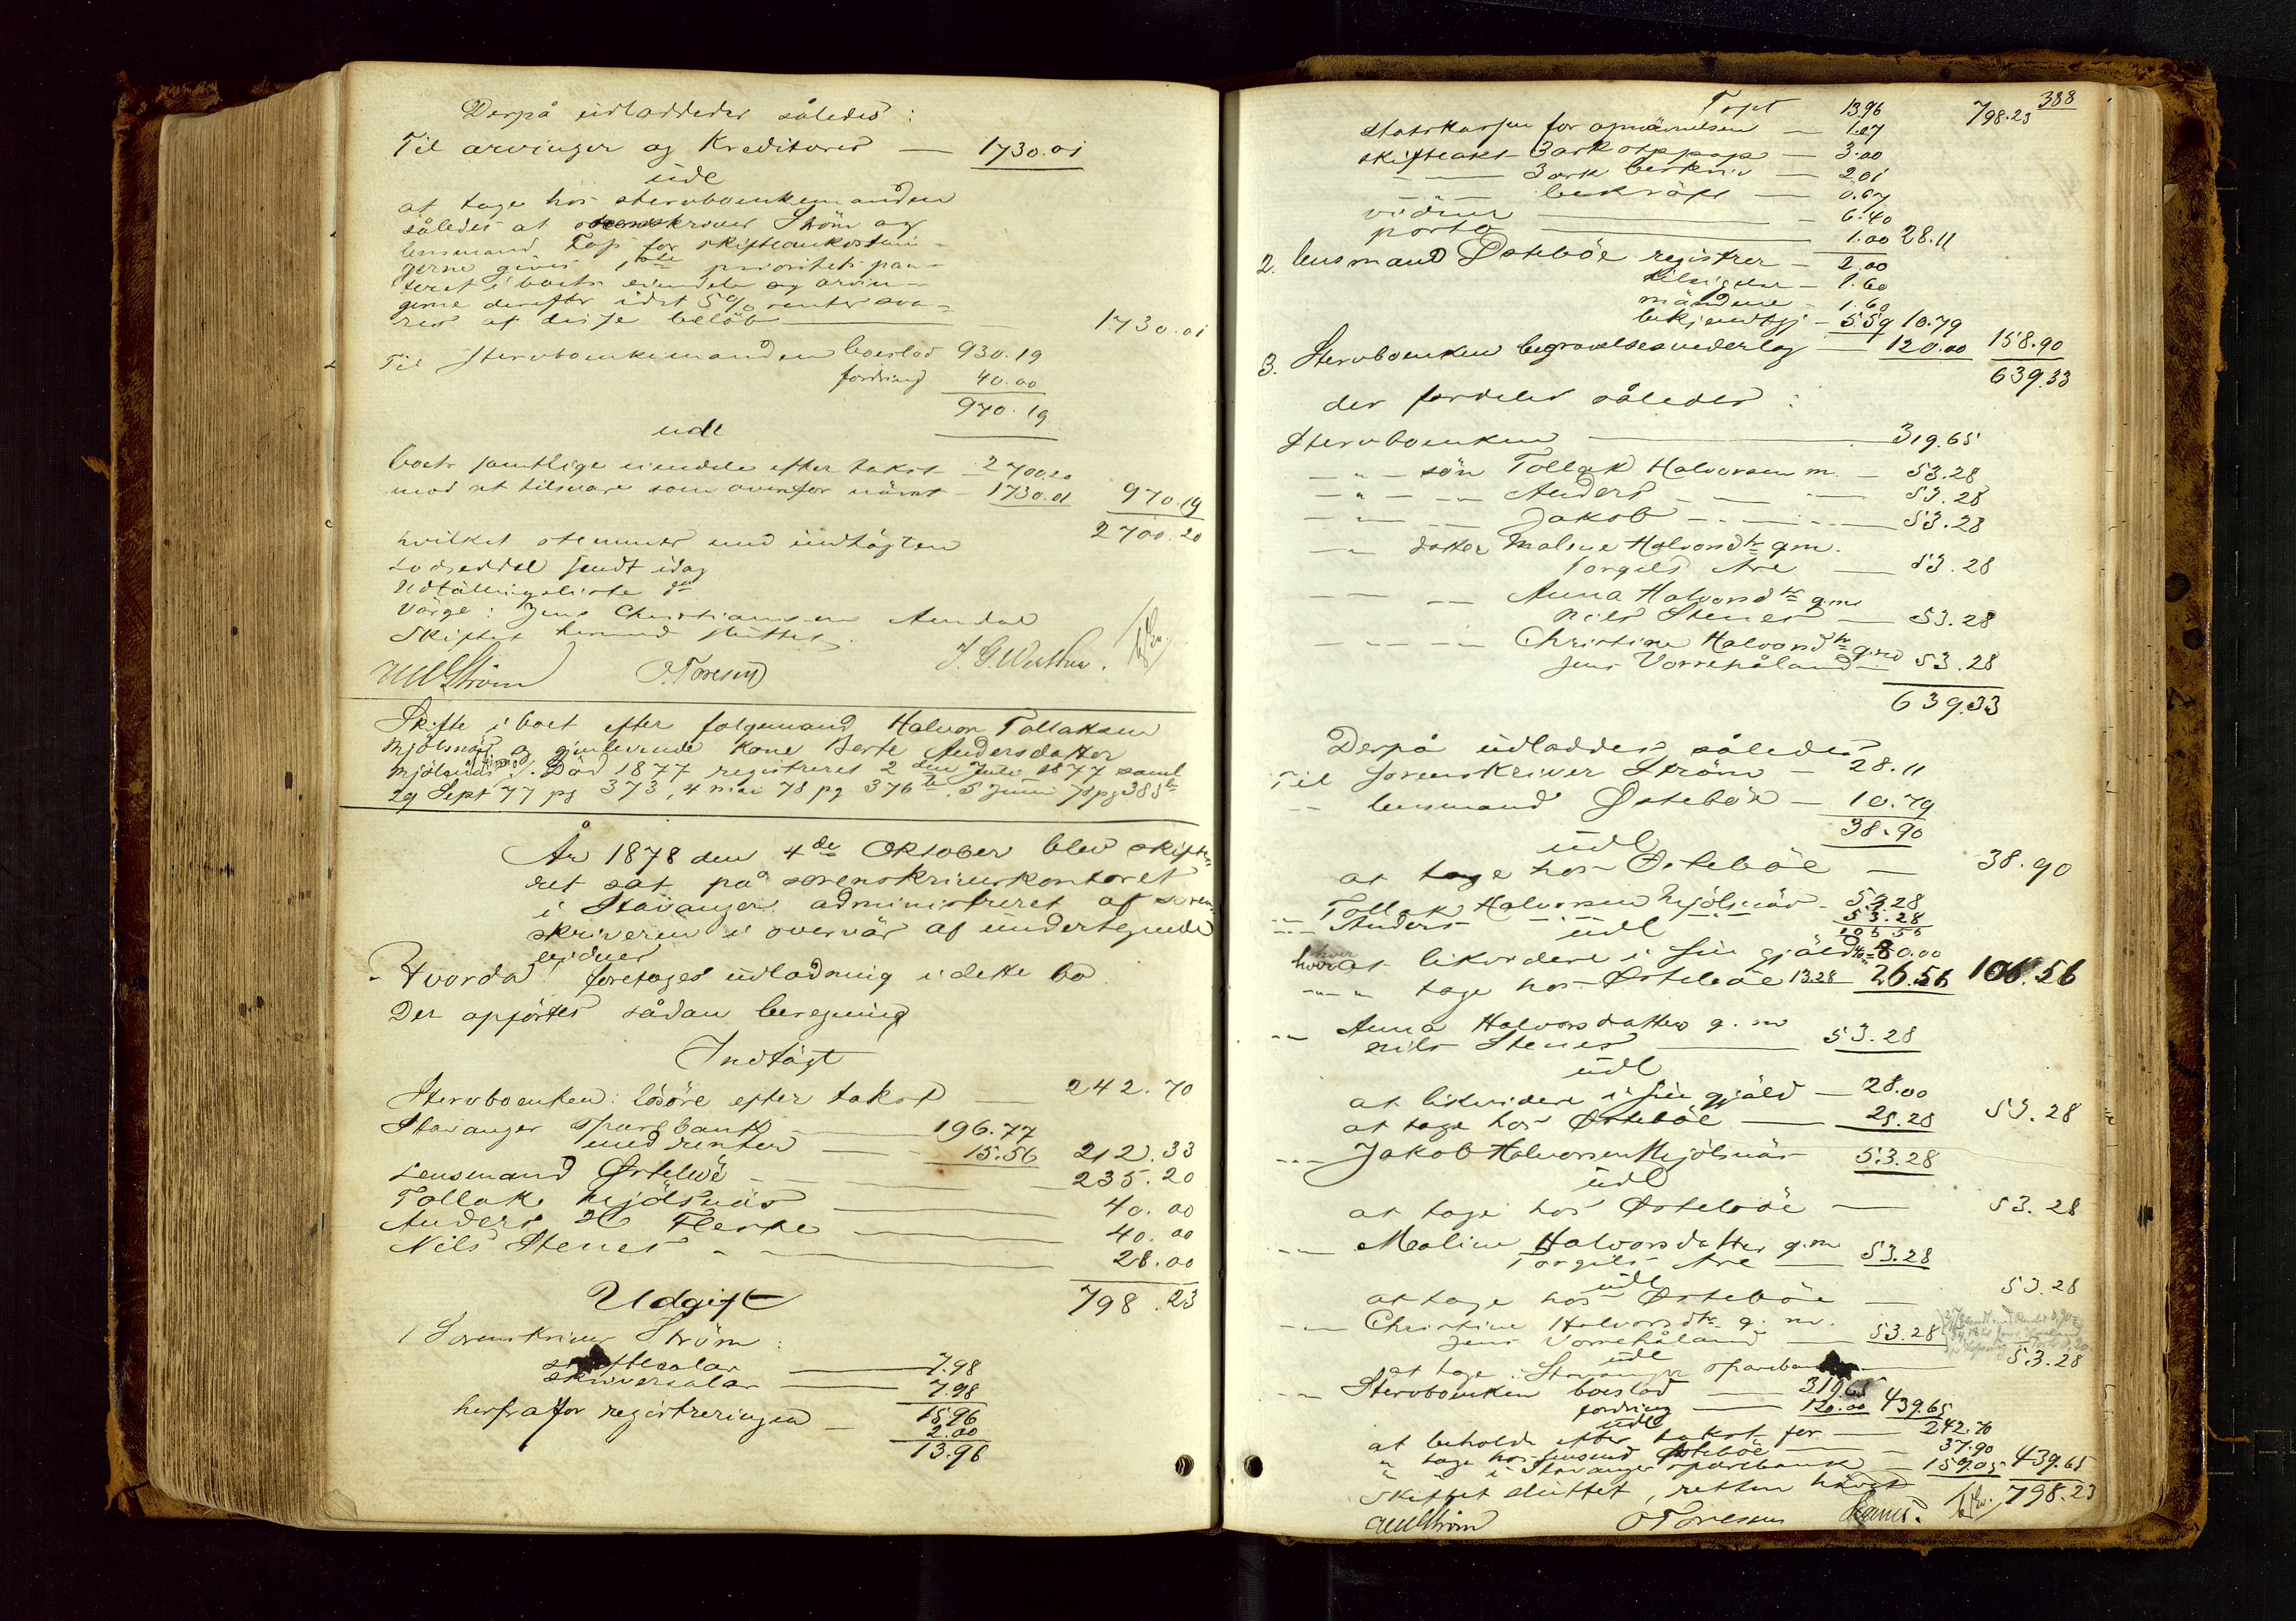 Derpå udladdedes således:
Til arvinger og Kreditorer — 1730.01
udl
at tage hos stervboenkemanden
således at sorenskriver Ström og
lensmand Tap for skifteomkostnin-
gerne gives 1ste prioritets pan-
teret i boets eiendele og arvin-
gerne derefter idet 5% renter sva-
res af disse belöb — 1730.01
Til stervboenkemanden boeslod 930.19
fordring 40.00
970.19
udl
boets samtlige eiendele efter takst — 2700.20
mod at tilsvare som ovenfor nävnt — 1730.01 970.19
2700.20
hvilket stemmer med indtägten
Lodseddel sendt idag
Udfällingsliste do
Värge: Jens Christiansen Aendal
Skiftet hermed sluttet.
O. Toresen
Skifte i boet efter folgemand Halvor Tollaksen
Mjölsnäs og gjenlevende kone Berte Andersdatter
Mjölsnäs. Död 1877 registreret 2den Juli 1877 saml
29 Sept 77 pg 373, 4 mai 78 pg 376, 5 Juni 78 pg 385
År 1878 den 4de Oktober blev skifte-
ret sat på sorenskriverkontoret
i Stavanger administreret af soren-
skriveren i overvär af undertegnede
vidner
Hvorda foretages udlodning i dette bo
Der opförtes sådan beregning
Indtägt
Stervboenken: lösöre efter takst — 242.70
Stavanger Sparebank — 196.77
med renter — 15.56 212.33
Lensmand Østeböe — 235.20
Tollak Mjölsnäs — 40.00
Anders H Fleske — 40.00
Nils Stenes — 28.00
798.23
Udgift
1 Sorenskriver Ström:
skiftesalar — 7.98
skriversalar — 7.98
15.96
herfra for registreringen — 2.00
13.96
388
Tspt 13.96 798.23
Statskassen for opnävnelsen — 1.07
skifteakt 3 ark stppap — 3.00
— — 3 ark beskriv — 2.01
— — bekräft — 0.67
vidner — 6.40
porto — 1.00 28.11
2. lensmand Østeböe registrer — 2.00
tilsigelse — 1.60
mändene — 1.60
bekjendtgj — 5.59 10.79
3. Stervboenken begravelsesvederlag — 120.00 158.90
639.33
der fordeles således:
Stervboenken — 319.65
— " — sön Tollak Halvorsen M — 53.28
— " — — Anders — — 53.28
— " — — Jakob — — 53.28
— " — datter Malene Halvorsdtr g.m.
Torgils Are — 53.28
— — — Anna Halvorsdtr g.m.
Nils Stenes — 53.28
— — — Christine Halvorsdtr g.m.
Jens Vorrehåland — 53.28
639.33
Derpå udladdes således
Til Sorenskriver Ström — 28.11
— lensmand Østeböe — 10.79
38.90
udl
at tage hos Østeböe — 38.90
Tollak Halvorsen Mjölsnäs — 53.28
— Anders — — 53.28
106.56
udl
hver at likvidere i sin gjäld 40 = 80.00
— " — tage hos Østeböe 13.28 26.56 106.56
— Anna Halvorsdatter g. m
Nils Stenes — 53.28
udl
at likvidere i sin gjäld — 28.00
at tage hos Østeböe — 25.28 53.28
— Jakob Halvorsen Mjölsnäs 53.28
udl
at tage hos Østeböe — 53.28
— Maline Halvorsdatter g.m
Torgils Are — 53.28
udl
at tage hos Østeböe — 53.28
— Christine Halvorsdtr g. m.
Jens Vorrehåland — 53.28
udl
at tage i Stavanger Sparebank — 53.28
— Stervboenken boeslod — 319.65
fordring — 120.00 439.65
udl
at beholde efter takst for — 242.70
" tage hos lensmd Østeböe — 37.90
" i Stavanger Sparebank — 159.05 439.65
Skiftet sluttet, retten hävet 798.23
O Toresen